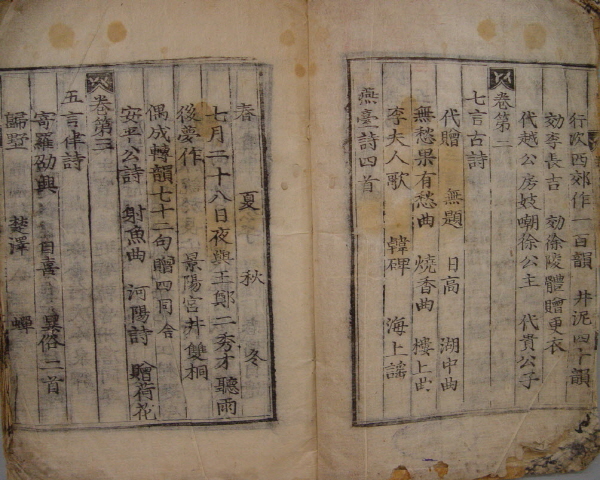 行次西郊作一百韻 井泥四十韻
効李長吉 効徐陵體贈更衣
代越公房妓嘲徐公主 代貴公子
卷第二
七言古詩
代贈 無題 日高 湖中曲
無愁果有愁曲 燒香曲 樓上曲
李夫人歌 韓碑 海上謠
燕臺詩四首
春 夏 秋 冬
七月二十八日夜與王鄭二秀才聽雨
後夢作 景陽宮井雙桐
偶成轉韻七十二句贈四同舍
安平公詩 射魚曲 河陽詩 贈荷花
卷第三
五言律詩
寄羅劭興 自喜 異俗二首
歸墅 楚澤 蟬